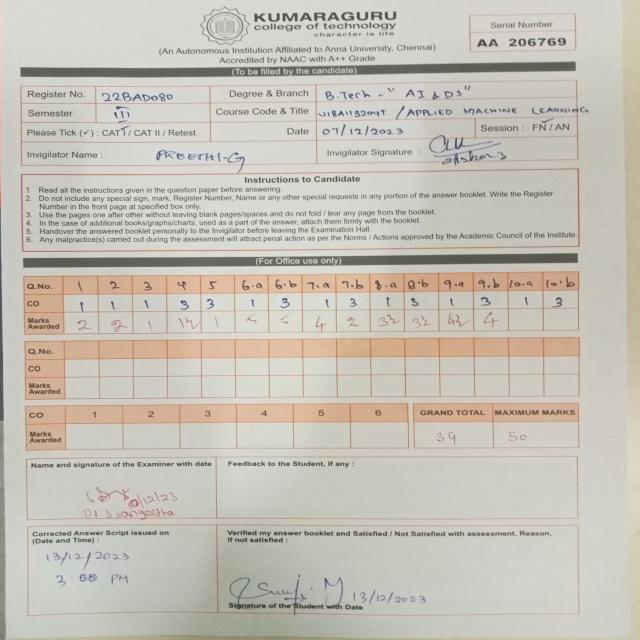 KUMARAGURU
college of technology
character is life
Serial Number
AA 206769
(An Autonomous Institution Affiliated to Anna University, Chennai)
Accredited by NAAC with A++ Grade
(To be filled by the candidate)
Register No. 22BAD080 Degree & Branch B.Tech - "AI & DS"
Semester III Course Code & Title U18AII3204T / APPLIED MACHINE LEARNING
Please Tick (✓) : CAT I / CAT II / Retest Date 07/12/2023 Session : FN / AN
Invigilator Name : PREETHI-G Invigilator Signature :
Instructions to Candidate
1 Read all the instructions given in the question paper before answering.
2. Do not include any special sign, mark, Register Number, Name or any other special requests in any portion of the answer booklet. Write the Register
Number in the front page at specified box only.
3. Use the pages one after other without leaving blank pages/spaces and do not fold / tear any page from the booklet.
4. In the case of additional books/graphs/charts, used as a part of the answer, attach them firmly with the booklet.
5. Handover the answered booklet personally to the Invigilator before leaving the Examination Hall.
6. Any malpractice(s) carried out during the assessment will attract penal action as per the Norms / Actions approved by the Academic Council of the Institute.
(For Office use only)
Q.No. 1 2 3 4 5 6.a 6.b 7.a 7.b 8.a 8.b 9.a 9.b 10.a 10.b
CO 1 1 1 3 3 1 3 1 3 1 3 1 3 1 3
Marks Awarded 2 2 1 1½ 1 5 5 4 2 3½ 3½ 4½ 4
Q.No.
CO
Marks Awarded
CO 1 2 3 4 5 6 GRAND TOTAL MAXIMUM MARKS
Marks Awarded 39 50
Name and signature of the Examiner with date Feedback to the Student, if any :
12/23
Dr. S. Sangeetha
Corrected Answer Script issued on
(Date and Time) :
Verified my answer booklet and Satisfied / Not Satisfied with assessment. Reason,
If not satisfied :
13/12/2023
3:00 PM
13/12/2023
Signature of the Student with Date